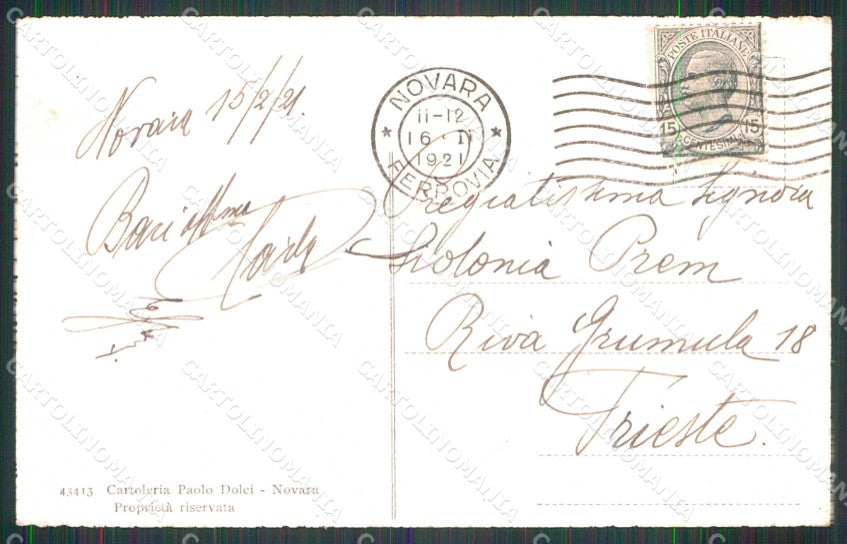 Novara 15/2/21.
Baci aff.mi
Carlo
NOVARA
11-12
16·II
1921
FERROVIA
POSTE ITALIANE
15 15
CENTESIMI
Pregiatissima Signora
Sidonia Prem
Riva Grumula 18
Trieste.
43413 Cartoleria Paolo Dolci - Novara
Proprietà riservata
CARTOLINOMANIA